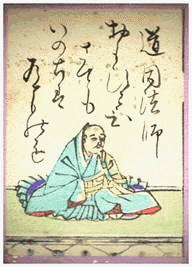 道因法師
おもひわひ
さても
いのちは
ものを